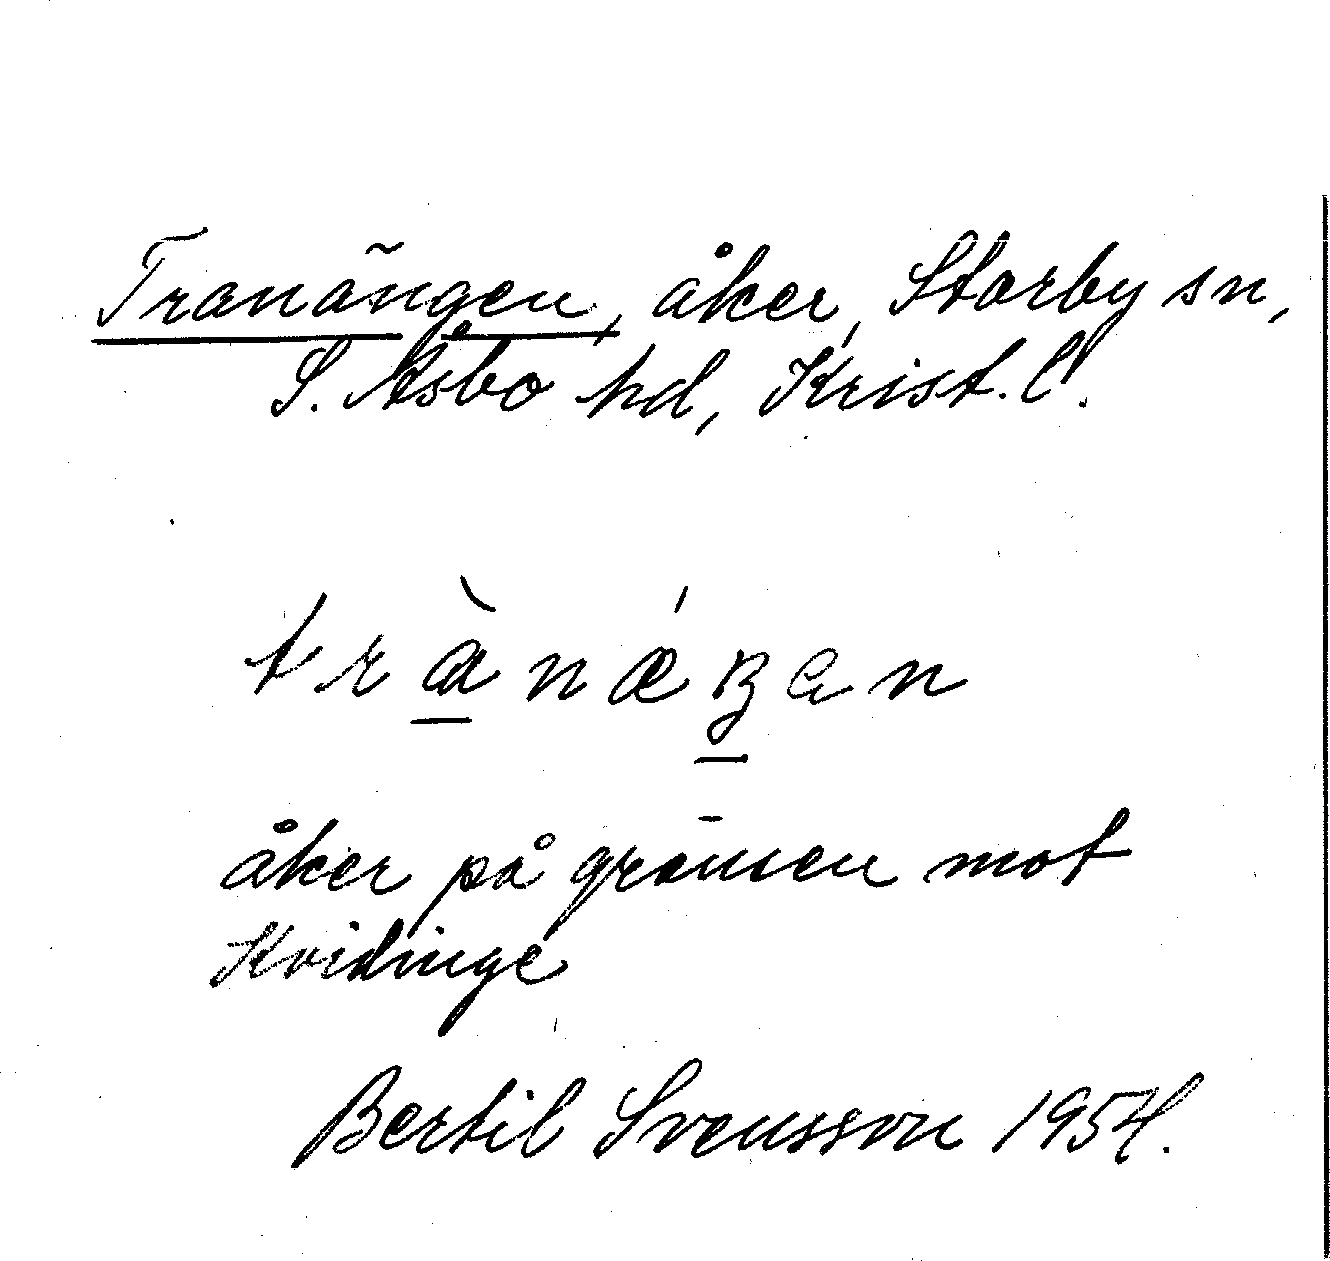 Tranängen, åker, Starby sn,
S. Åsbo hd, Krist. l.
åker på gränsen mot
Kvidinge
Bertil Svensson 1954.